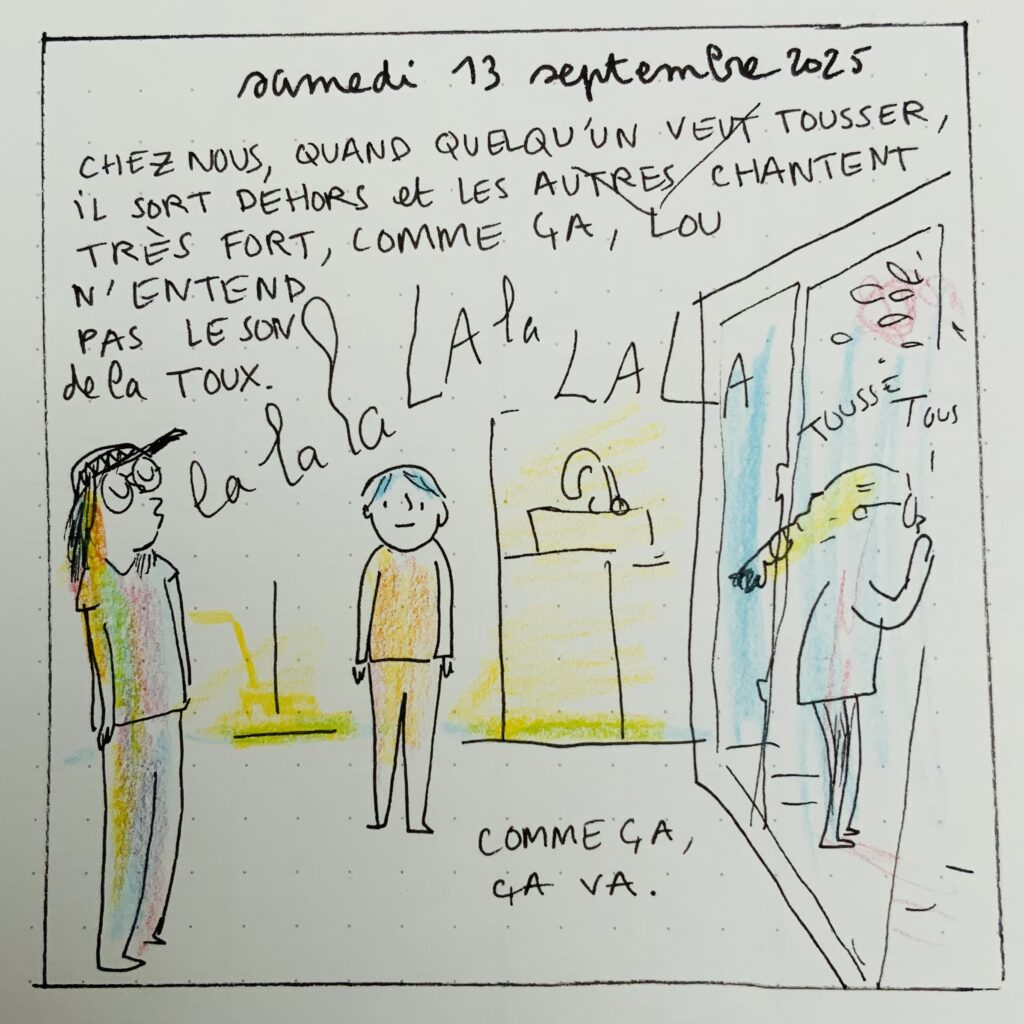 samedi 13 septembre 2025
CHEZ NOUS, QUAND QUELQU'UN VEUT TOUSSER,
iL SORT DEHORS et LES AUTRES CHANTENT
TRÈS FORT, COMME ÇA, LOU
N'ENTEND
PAS LE SON
de la TOUX.
la la la la
LA la LA LA
TOUSSE
TOUS
COMME ÇA,
ÇA VA.